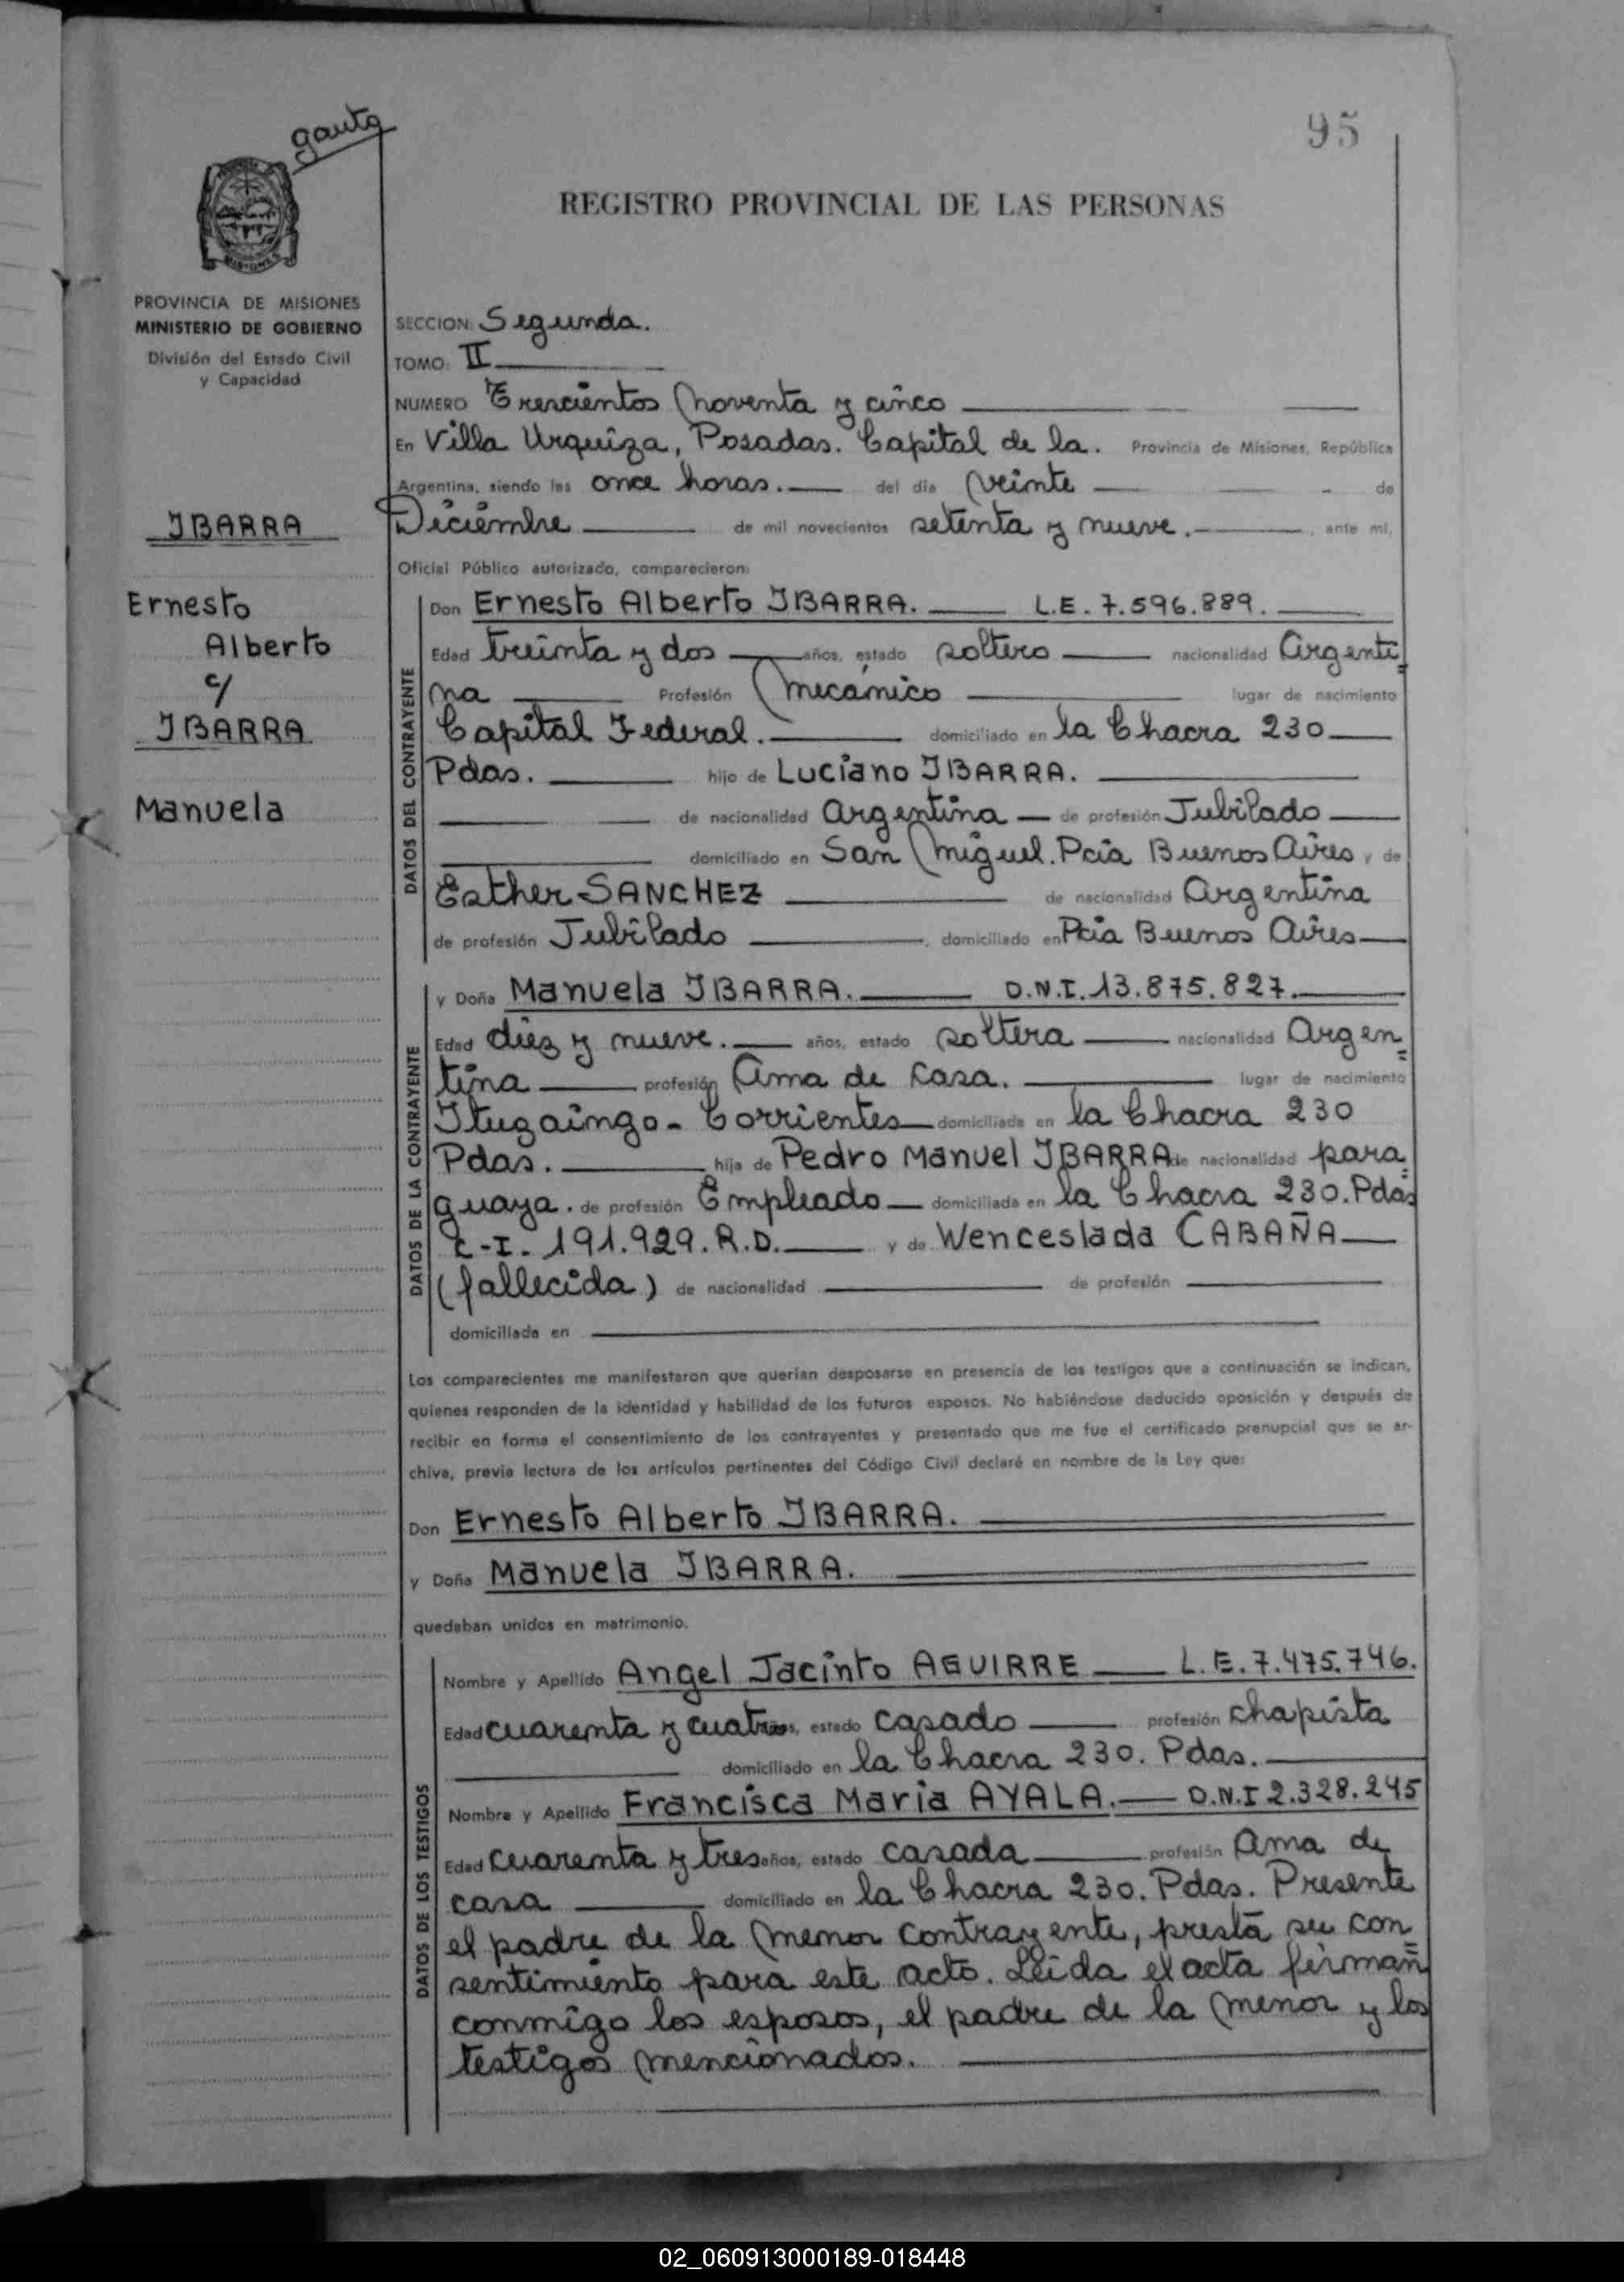 gauto
95
REGISTRO PROVINCIAL DE LAS PERSONAS
MISIONES
PROVINCIA DE MISIONES
MINISTERIO DE GOBIERNO
División del Estado Civil
y Capacidad
IBARRA
Ernesto
Alberto
c/
IBARRA
Manuela
SECCION: Segunda.
TOMO: II
NUMERO Trescientos Noventa y cinco
En Villa Urquiza, Posadas. Capital de la. Provincia de Misiones, República
Argentina, siendo las once horas. del día Veinte de
Diciembre de mil novecientos setenta y nueve. , ante mí,
Oficial Público autorizado, comparecieron:
DATOS DEL CONTRAYENTE
Don Ernesto Alberto IBARRA. L.E. 7.596.889.
Edad treinta y dos años, estado soltero nacionalidad Argenti=
na Profesión Mecánico lugar de nacimiento
Capital Federal. domiciliado en la Chacra 230
Pdas. hijo de Luciano IBARRA.
de nacionalidad argentina de profesión Jubilado
domiciliado en San Miguel. Pcia Buenos Aires y de
Esther SANCHEZ de nacionalidad Argentina
de profesión Jubilado , domiciliado en Pcia Buenos Aires
DATOS DE LA CONTRAYENTE
y Doña Manuela IBARRA. D.N.I. 13.875.827.
Edad diez y nueve. años, estado soltera nacionalidad Argen=
tina profesión Ama de casa. lugar de nacimiento
Ituzaingo - Corrientes domiciliada en la Chacra 230
Pdas. hija de Pedro Manuel IBARRA de nacionalidad para=
guaya. de profesión Empleado domiciliada en la Chacra 230. Pdas
C-I- 191.929. R.D. y de Wenceslada CABAÑA
(fallecida) de nacionalidad de profesión
domiciliada en
Los comparecientes me manifestaron que querían desposarse en presencia de los testigos que a continuación se indican,
quienes responden de la identidad y habilidad de los futuros esposos. No habiéndose deducido oposición y después de
recibir en forma el consentimiento de los contrayentes y presentado que me fue el certificado prenupcial que se ar-
chiva, previa lectura de los artículos pertinentes del Código Civil declaré en nombre de la Ley que:
Don Ernesto Alberto IBARRA.
y Doña Manuela IBARRA.
quedaban unidos en matrimonio.
DATOS DE LOS TESTIGOS
Nombre y Apellido Angel Jacinto AGUIRRE L.E. 7.475.746.
Edad cuarenta y cuatro años, estado casado profesión chapista
domiciliado en la Chacra 230. Pdas.
Nombre y Apellido Francisca Maria AYALA. D.N.I 2.328.245
Edad cuarenta y tres años, estado casada profesión Ama de
casa domiciliado en la Chacra 230. Pdas. Presente
el padre de la menor contrayente, presta su con=
sentimiento para este acto. Leida el acta firman
conmigo los esposos, el padre de la menor y los
testigos mencionados.
02_060913000189-018448